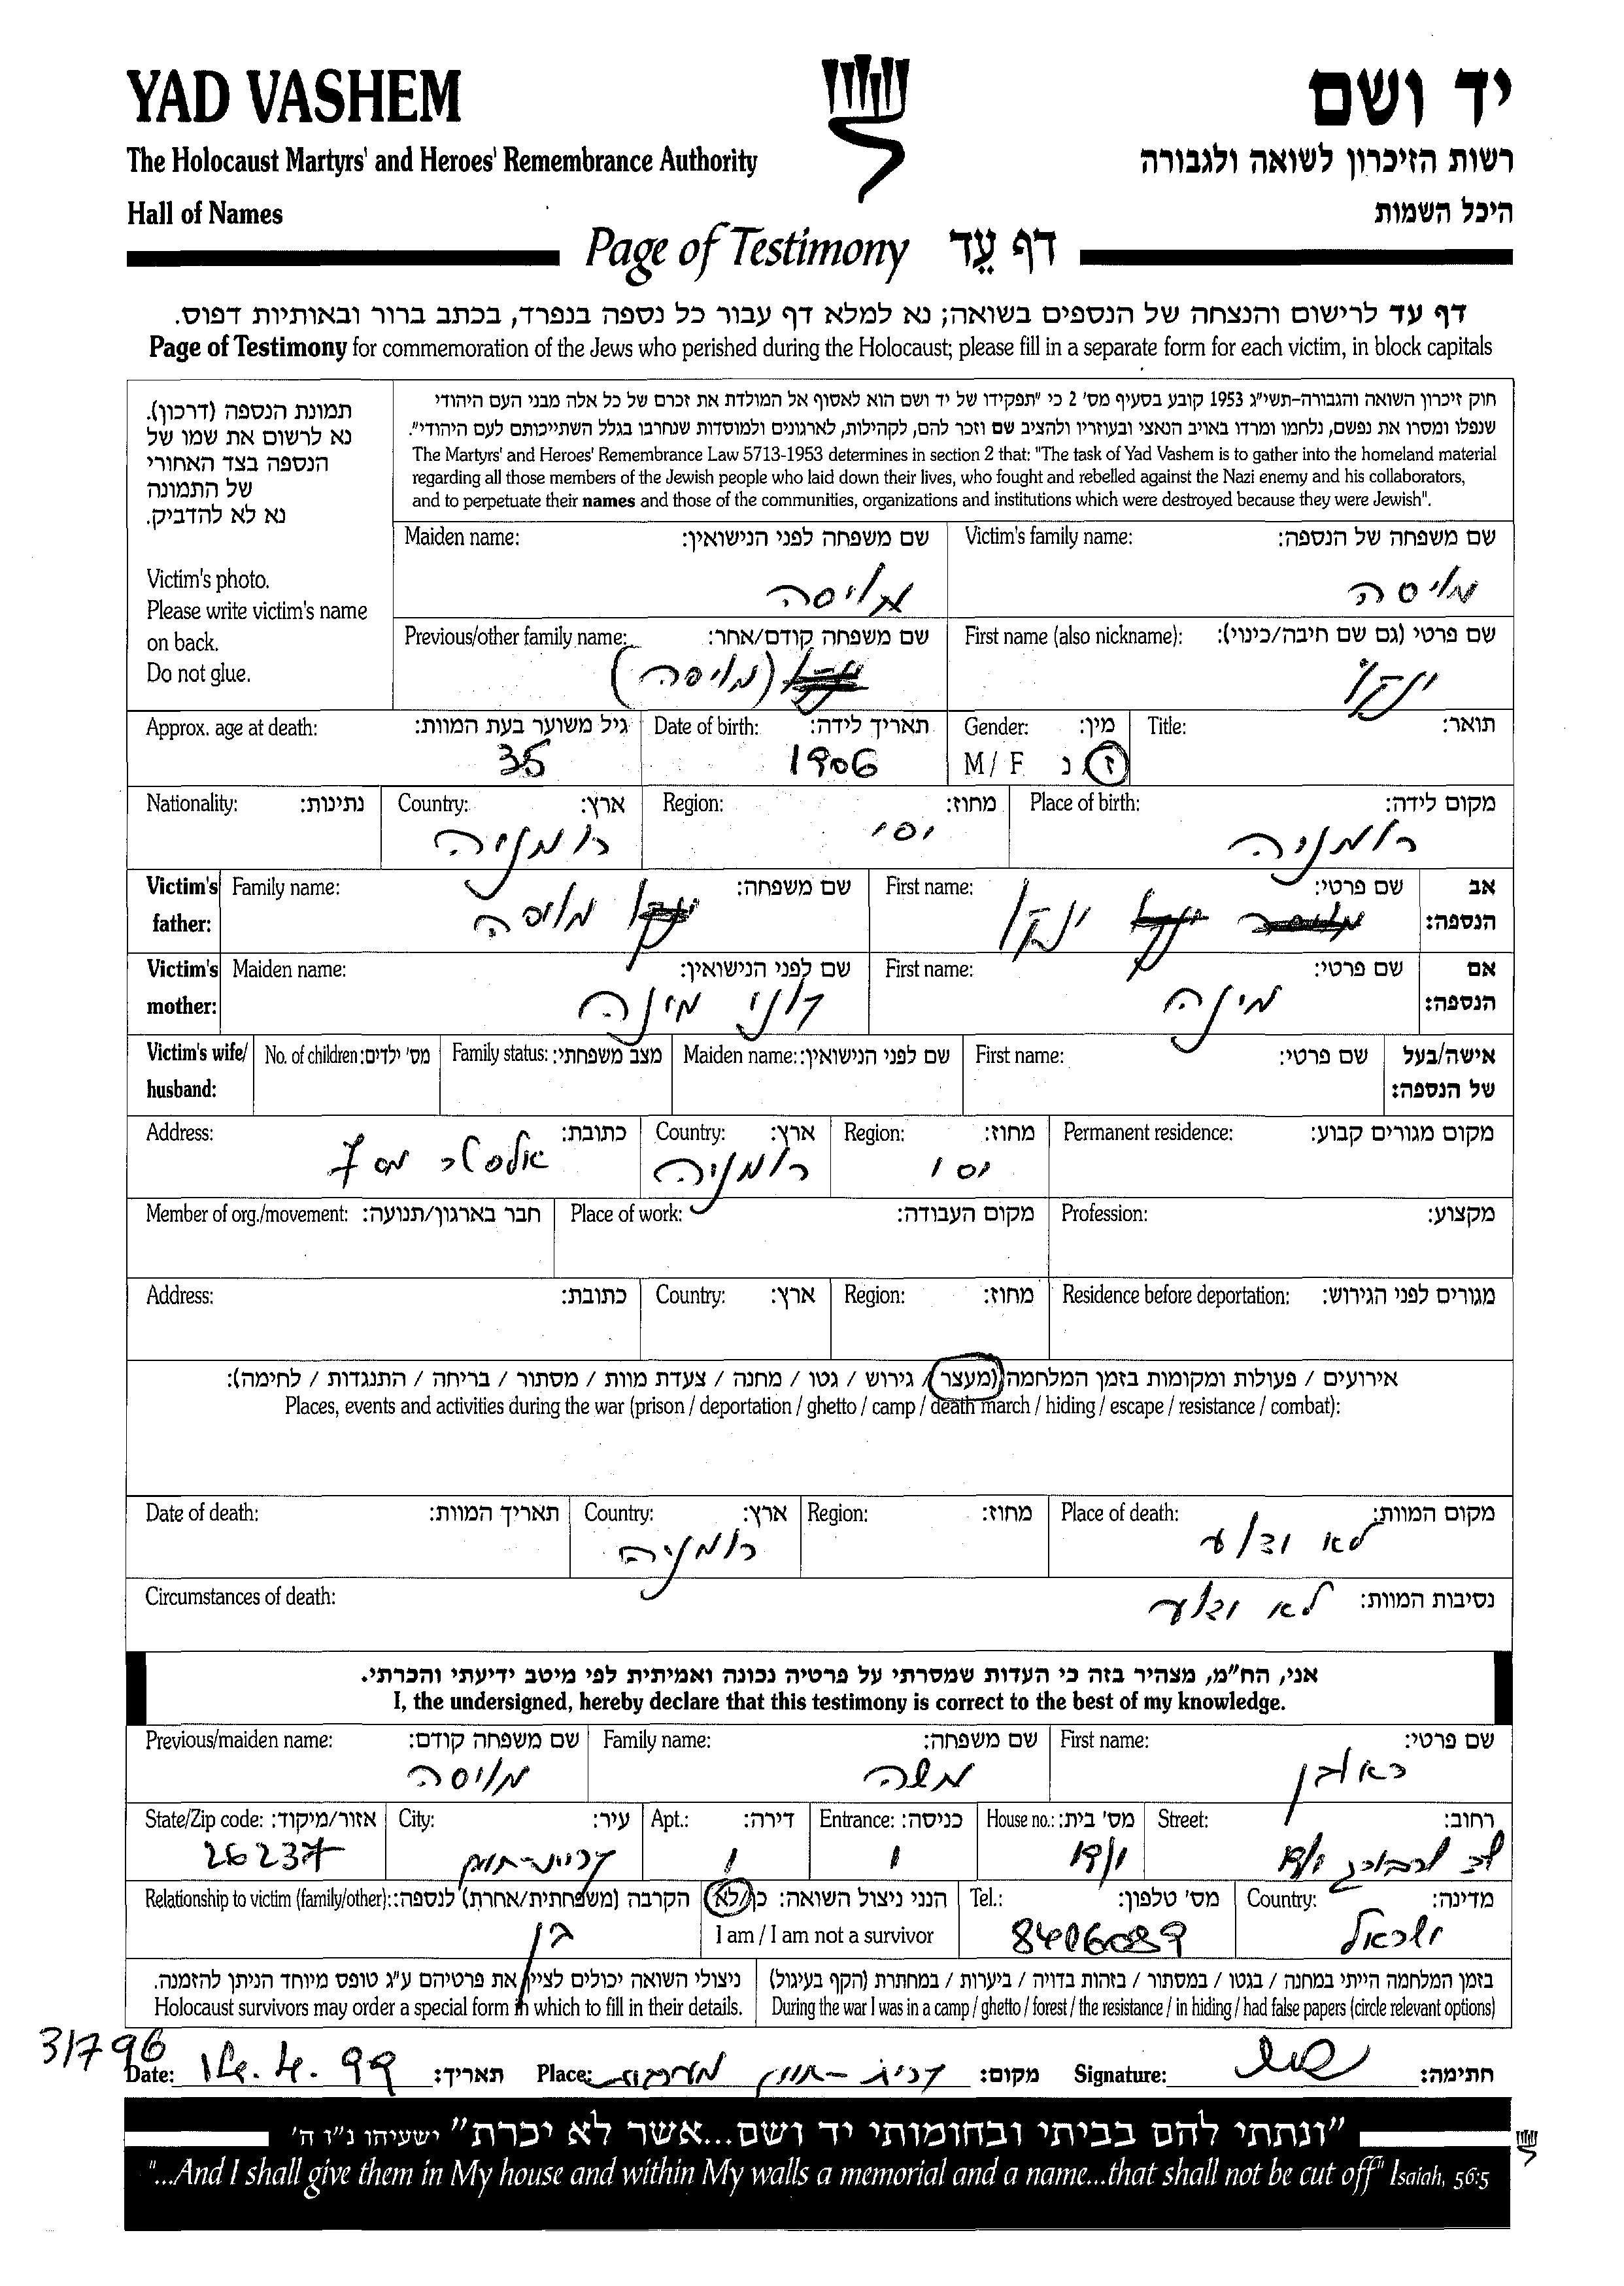 YAD VASHEM
יד ושם
The Holocaust Martyrs' and Heroes' Remembrance Authority
רשות הזיכרון לשואה ולגבורה
Hall of Names
היכל השמות
Page of Testimony דף עֵד
דף עד לרישום והנצחה של הנספים בשואה; נא למלא דף עבור כל נספה בנפרד, בכתב ברור ובאותיות דפוס.
Page of Testimony for commemoration of the Jews who perished during the Holocaust; please fill in a separate form for each victim, in block capitals
תמונת הנספה (דרכון).
נא לרשום את שמו של
הנספה בצד האחורי
של התמונה
נא לא להדביק.
Victim's photo.
Please write victim's name
on back.
Do not glue.
חוק זיכרון השואה והגבורה-תשי"ג 1953 קובע בסעיף מס' 2 כי "תפקידו של יד ושם הוא לאסוף אל המולדת את זכרם של כל אלה מבני העם היהודי
שנפלו ומסרו את נפשם, נלחמו ומרדו באויב הנאצי ובעוזריו ולהציב שם וזכר להם, לקהילות, לארגונים ולמוסדות שנחרבו בגלל השתייכותם לעם היהודי".
The Martyrs' and Heroes' Remembrance Law 5713-1953 determines in section 2 that: "The task of Yad Vashem is to gather into the homeland material
regarding all those members of the Jewish people who laid down their lives, who fought and rebelled against the Nazi enemy and his collaborators,
and to perpetuate their names and those of the communities, organizations and institutions which were destroyed because they were Jewish".
Victim's family name: שם משפחה של הנספה:
מויסה
Maiden name: שם משפחה לפני הנישואין:
מויסה
First name (also nickname): שם פרטי (גם שם חיבה/כינוי):
ינקו
Previous/other family name: שם משפחה קודם/אחר:
(מויסה)
Title: תואר:
Gender: מין:
M / F ז נ
Date of birth: תאריך לידה:
1906
Approx. age at death: גיל משוער בעת המוות:
35
Place of birth: מקום לידה:
רומניה
Region: מחוז:
יסי
Country: ארץ:
רומניה
Nationality: נתינות:
Victim's father: אב הנספה:
First name: שם פרטי:
ינקו
Family name: שם משפחה:
מויסה
Victim's mother: אם הנספה:
First name: שם פרטי:
מינה
Maiden name: שם לפני הנישואין:
מינה
Victim's wife/ husband: אישה/בעל של הנספה:
First name: שם פרטי:
Maiden name: שם לפני הנישואין:
Family status: מצב משפחתי:
No. of children: מס' ילדים:
Permanent residence: מקום מגורים קבוע:
Region: מחוז:
יסי
Country: ארץ:
רומניה
Address: כתובת:
Profession: מקצוע:
Place of work: מקום העבודה:
Member of org./movement: חבר בארגון/תנועה:
Residence before deportation: מגורים לפני הגירוש:
Region: מחוז:
Country: ארץ:
Address: כתובת:
אירועים / פעולות ומקומות בזמן המלחמה (מעצר / גירוש / גטו / מחנה / צעדת מוות / מסתור / בריחה / התנגדות / לחימה):
Places, events and activities during the war (prison / deportation / ghetto / camp / death march / hiding / escape / resistance / combat):
Place of death: מקום המוות:
לא ידוע
Region: מחוז:
Country: ארץ:
רומניה
Date of death: תאריך המוות:
Circumstances of death: נסיבות המוות:
לא ידוע
אני, הח"מ, מצהיר בזה כי העדות שמסרתי על פרטיה נכונה ואמיתית לפי מיטב ידיעתי והכרתי.
I, the undersigned, hereby declare that this testimony is correct to the best of my knowledge.
First name: שם פרטי:
ראובן
Family name: שם משפחה:
משה
Previous/maiden name: שם משפחה קודם:
מויסה
Street: רחוב:
House no.: מס' בית:
Entrance: כניסה:
1
Apt.: דירה:
1
City: עיר:
קריית-חיים
State/Zip code: אזור/מיקוד:
26237
Country: מדינה:
ישראל
Tel.: מס' טלפון:
8406089
הנני ניצול השואה: כן/לא
I am / I am not a survivor
Relationship to victim (family/other): הקרבה (משפחתית/אחרת) לנספה:
בן
בזמן המלחמה הייתי במחנה / בגטו / במסתור / בזהות בדויה / ביערות / במחתרת (הקף בעיגול)
During the war I was in a camp / ghetto / forest / the resistance / in hiding / had false papers (circle relevant options)
ניצולי השואה יכולים לציין את פרטיהם ע"ג טופס מיוחד הניתן להזמנה.
Holocaust survivors may order a special form in which to fill in their details.
31796
Date: 14.4.99 תאריך:
Place: קרית-חיים מערבית מקום:
Signature: חתימה:
"ונתתי להם בביתי ובחומותי יד ושם...אשר לא יכרת" ישעיהו נ"ו ה'
"...And I shall give them in My house and within My walls a memorial and a name...that shall not be cut off" Isaiah, 56:5